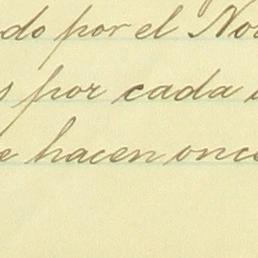 do por el No
s por cada
e hacen once